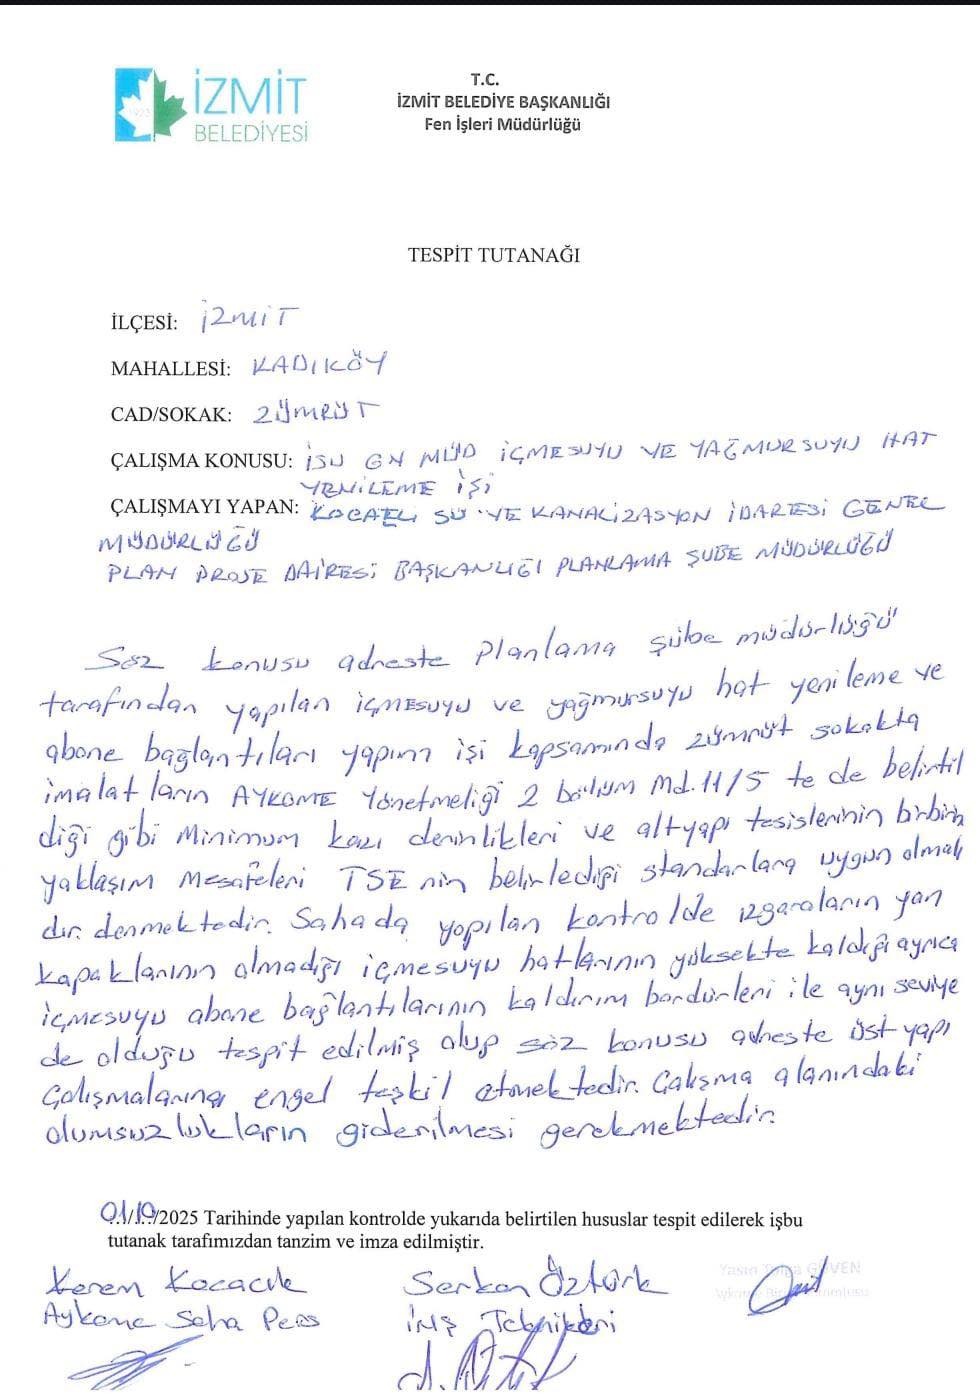 1923
İZMİT
BELEDİYESİ
T.C.
İZMİT BELEDİYE BAŞKANLIĞI
Fen İşleri Müdürlüğü
TESPİT TUTANAĞI
İLÇESİ: İZMİT
MAHALLESİ: KADIKÖY
CAD/SOKAK: ZÜMRÜT
ÇALIŞMA KONUSU: İSU GN MÜD İÇMESUYU VE YAĞMURSUYU HAT
YENİLEME İŞİ
ÇALIŞMAYI YAPAN: KOCAELİ SU VE KANALİZASYON İDARESİ GENEL
MÜDÜRLÜĞÜ
PLAN PROJE DAİRESİ BAŞKANLIĞI PLANLAMA ŞUBE MÜDÜRLÜĞÜ
Söz konusu adreste Planlama şübe müdürlüğü
tarafından yapılan içmesuyu ve yağmursuyu hat yenileme ve
abone bağlantıları yapım işi kapsamında zümrüt sokakta
imalatların AYKOME Yönetmeliği 2 bölüm Md.11/5 te de belirtil
diği gibi Minimum kazı derinlikleri ve altyapı tesislerinin birbirin
yaklaşım Mesafeleri TSE nin belirlediği standarlara uygun olmalı
dır. denmektedir. Sahada yapılan kontrolde ızgaraların yan
kapaklarının olmadığı içmesuyu hatlarının yüksekte kaldığı ayrıca
içmesuyu abone bağlantılarının kaldırım bordürleri ile aynı seviye
de olduğu tespit edilmiş olup söz konusu adreste üst yapı
Çalışmalarına engel teşkil etmektedir. Çalışma alanındaki
olumsuzlukların giderilmesi gerekmektedir.
01/10/2025 Tarihinde yapılan kontrolde yukarıda belirtilen hususlar tespit edilerek işbu
tutanak tarafımızdan tanzim ve imza edilmiştir.
Kerem Kocacık Serkan Öztürk Yasin Tolga GÜVEN
Aykome Saha Pers İnş Teknikeri Aykome Birim Sorumlusu